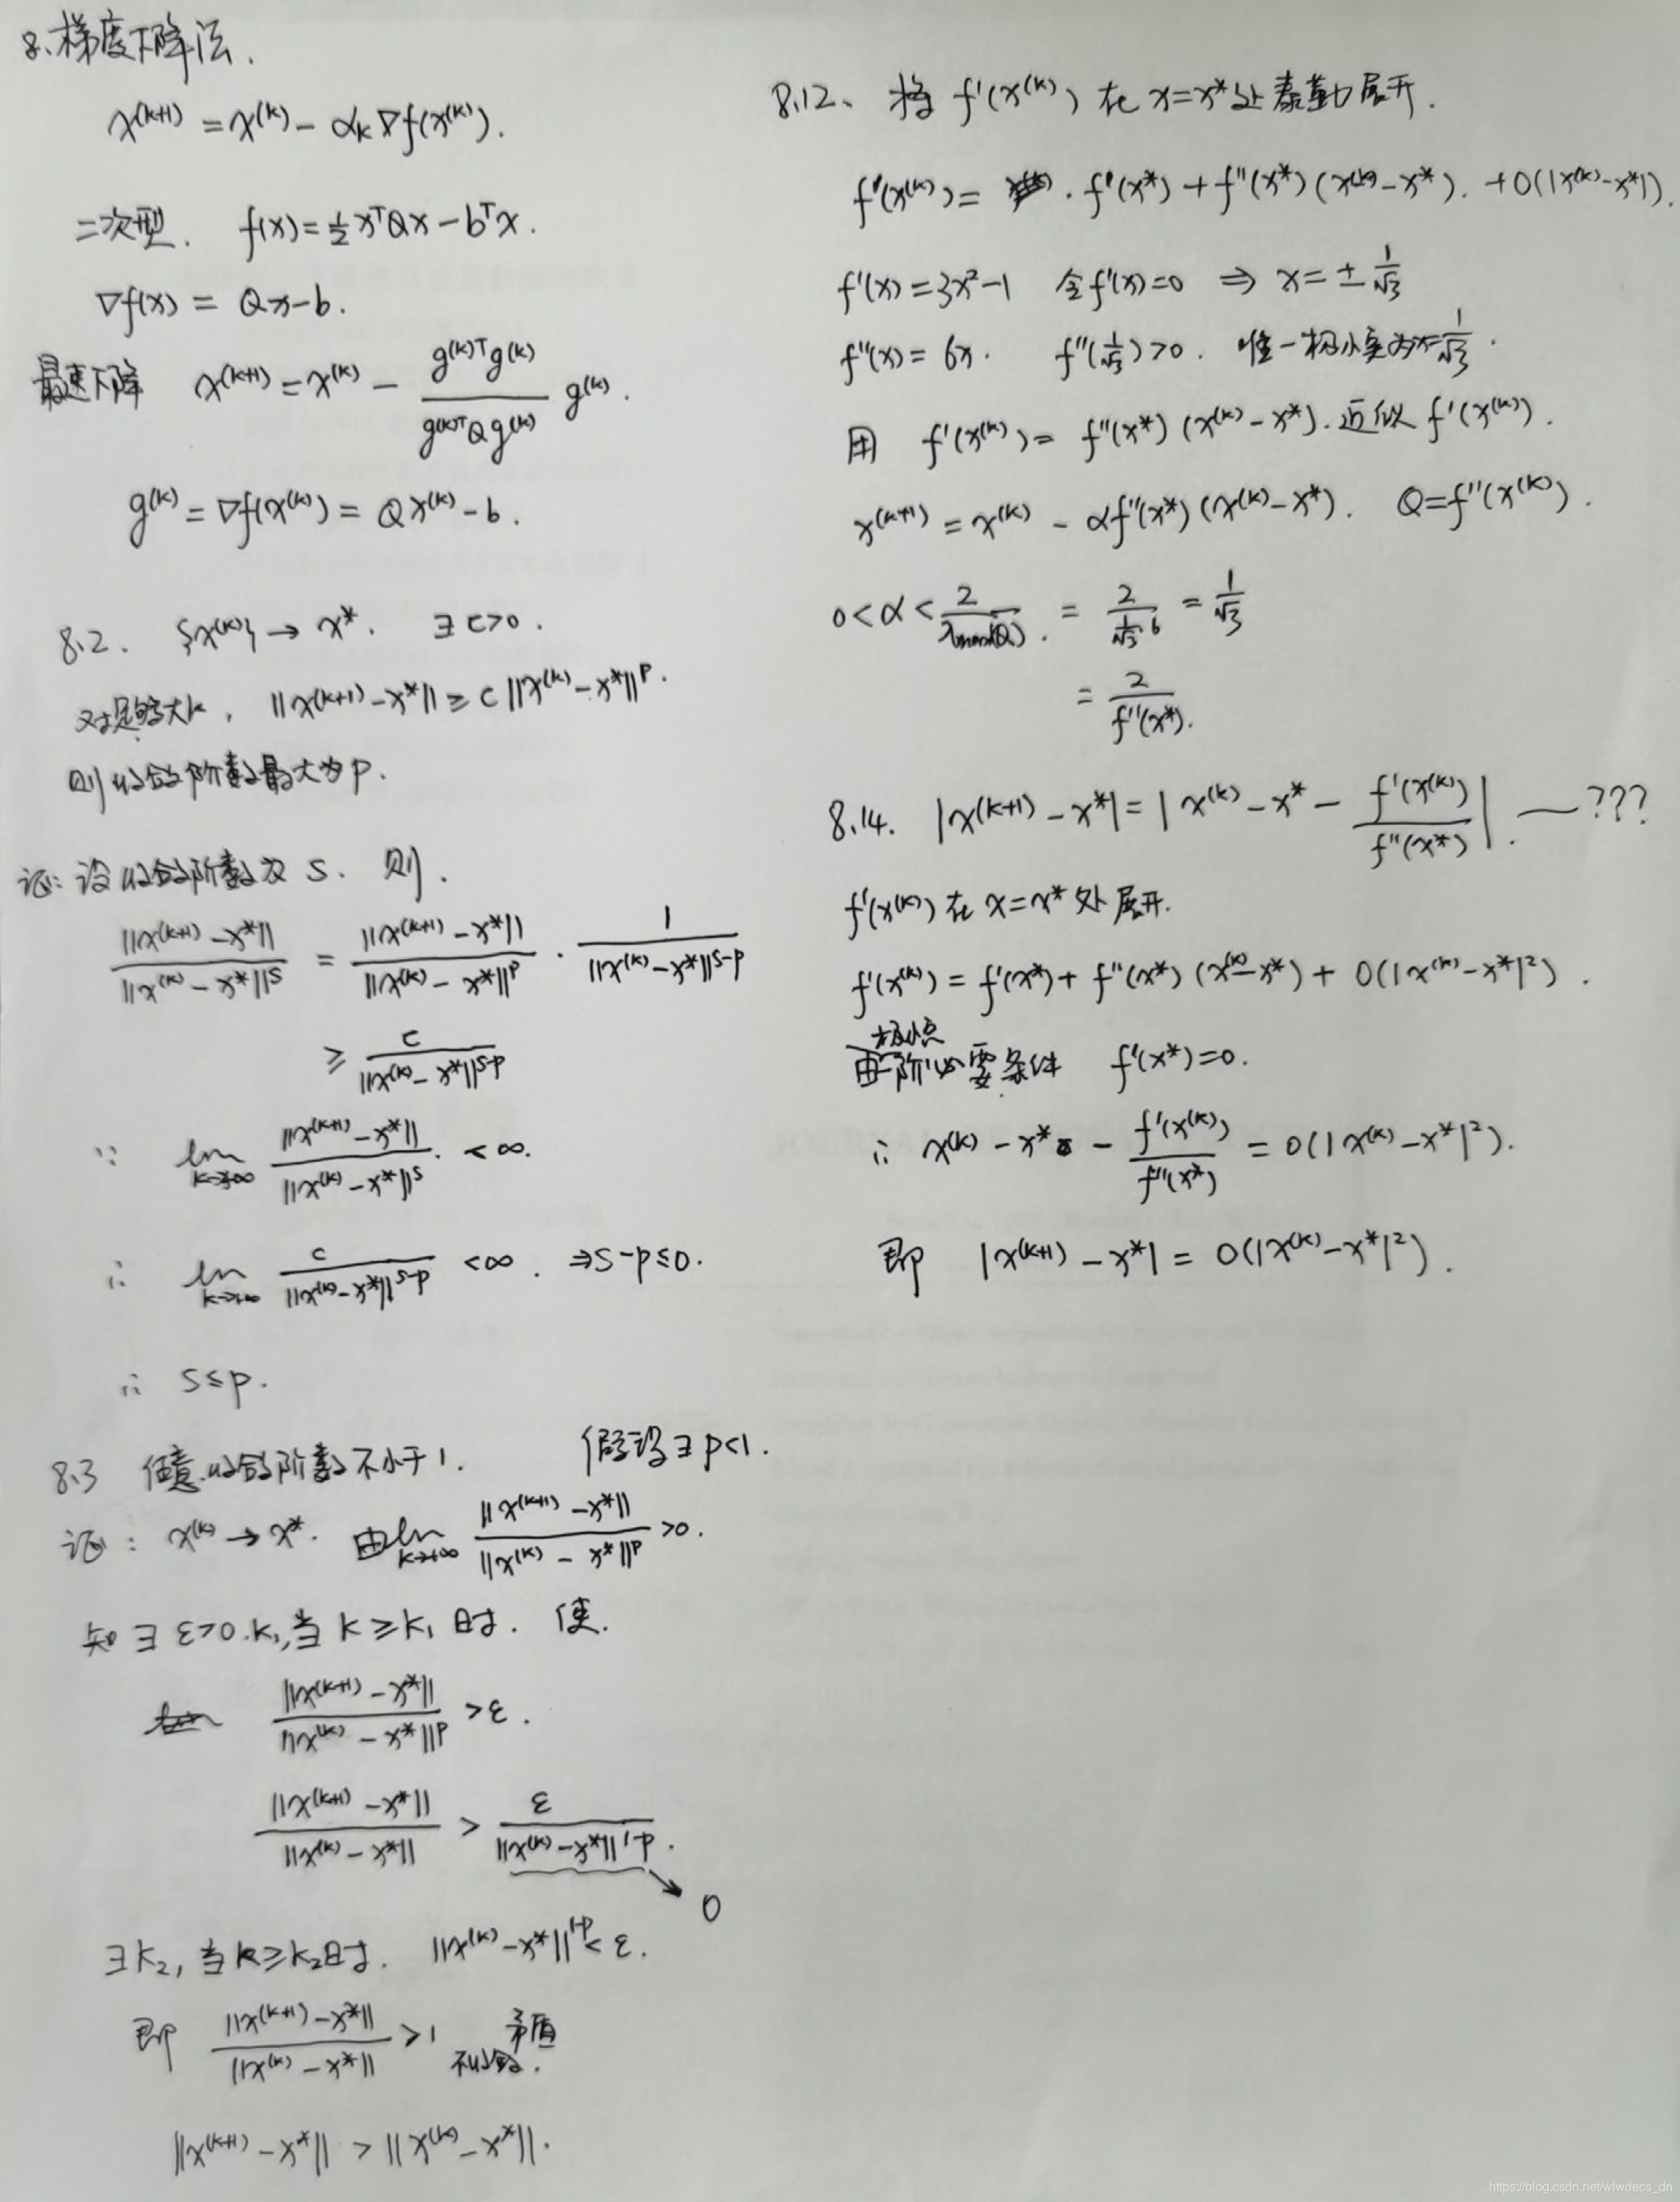 8、梯度下降法.
x^(k+1) = x^(k) - α_k ∇f(x^(k)).
二次型. f(x) = 1/2 x^T Q x - b^T x.
∇f(x) = Qx - b.
最速下降 x^(k+1) = x^(k) - (g^(k)T g^(k)) / (g^(k)T Q g^(k)) g^(k).
g^(k) = ∇f(x^(k)) = Q x^(k) - b.
8.2. {x^(k)} → x*. ∃ c>0.
对足够大k, ||x^(k+1) - x*|| ≥ c ||x^(k) - x*||^p.
则收敛阶数最大为p.
证: 设收敛阶数为 s. 则.
||x^(k+1) - x*|| / ||x^(k) - x*||^s = ||x^(k+1) - x*|| / ||x^(k) - x*||^p · 1 / ||x^(k) - x*||^(s-p)
≥ c / ||x^(k) - x*||^(s-p)
∵ lim_(k→∞) ||x^(k+1) - x*|| / ||x^(k) - x*||^s < ∞.
∴ lim_(k→+∞) c / ||x^(k) - x*||^(s-p) < ∞. ⇒ s-p ≤ 0.
∴ s ≤ p.
8.3 任意收敛阶数不小于1. 假设∃ p<1.
证: x^(k) → x*. 由 lim_(k→+∞) ||x^(k+1) - x*|| / ||x^(k) - x*||^p > 0.
知 ∃ ε>0. k₁, 当 k ≥ k₁ 时. 使.
||x^(k+1) - x*|| / ||x^(k) - x*||^p > ε.
||x^(k+1) - x*|| / ||x^(k) - x*|| > ε / ||x^(k) - x*||^(1-p).
0
∃ k₂, 当 k ≥ k₂时. ||x^(k) - x*||^(1-p) < ε.
即 ||x^(k+1) - x*|| / ||x^(k) - x*|| > 1 矛盾
不收敛.
||x^(k+1) - x*|| > ||x^(k) - x*||.
8.12、将 f'(x^(k)) 在 x=x* 处泰勒展开.
f'(x^(k)) = · f'(x*) + f''(x*)(x^(k) - x*). + O(|x^(k) - x*|).
f'(x) = 3x² - 1 令 f'(x)=0 ⇒ x = ± 1/√3
f''(x) = 6x. f''(1/√3) > 0. 唯一极小点为x=1/√3.
用 f'(x^(k)) = f''(x*)(x^(k) - x*). 近似 f'(x^(k)).
x^(k+1) = x^(k) - αf''(x*)(x^(k) - x*). Q = f''(x^(k)).
0 < α < 2/λmax(Q). = 2/(1/√3 · 6) = 1/√3
= 2/f''(x*).
8.14. |x^(k+1) - x*| = |x^(k) - x* - f'(x^(k))/f''(x*)|. — ???
f'(x^(k)) 在 x=x* 处展开.
f'(x^(k)) = f'(x*) + f''(x*)(x^(k) - x*) + O(|x^(k) - x*|²).
极小点
由一阶必要条件 f'(x*)=0.
∴ x^(k) - x* - f'(x^(k))/f''(x*) = O(|x^(k) - x*|²).
即 |x^(k+1) - x*| = O(|x^(k) - x*|²).
https://blog.csdn.net/wlwdecs_dn